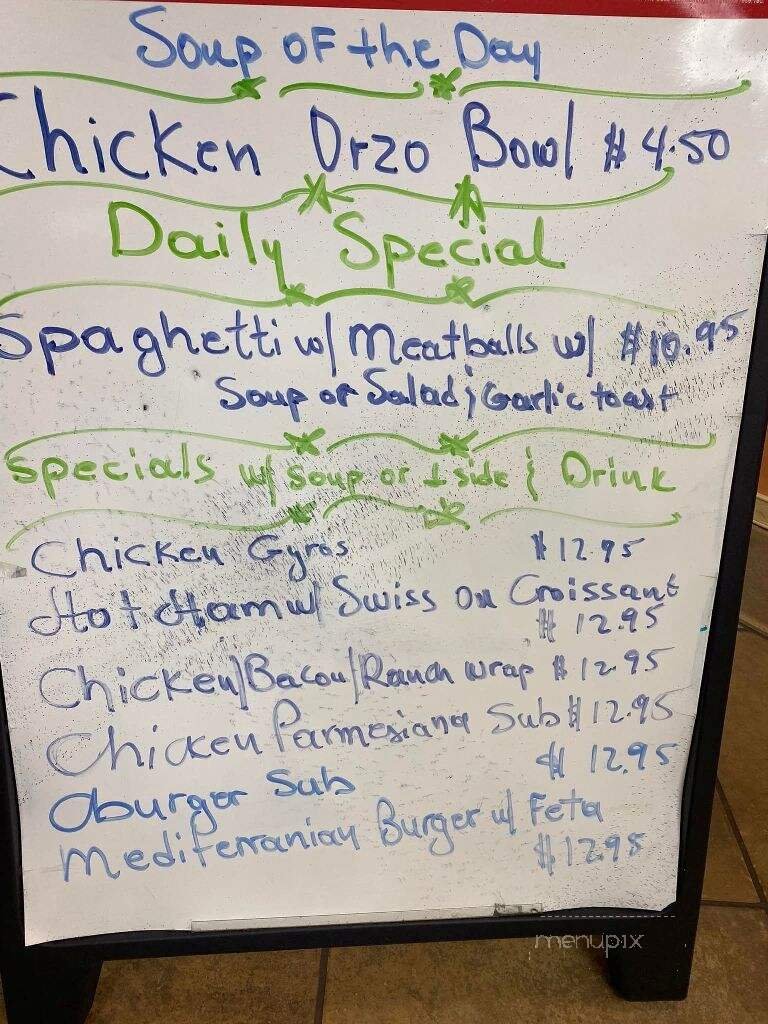 Soup OF the Day
Chicken Orzo Bowl $4.50
Daily Special
Spaghetti w/ Meatballs w/ $10.95
Soup or Salad & Garlic toast
Specials w/ Soup or 1 side & Drink
Chicken Gyros $12.95
Hot Ham w/ Swiss on Croissant
$12.95
Chicken/Bacon/Ranch Wrap $12.95
Chicken Parmesiana Sub $12.95
$12.95
Cburger Sub
Mediterranian Burger w/ Feta
$12.95
menupix